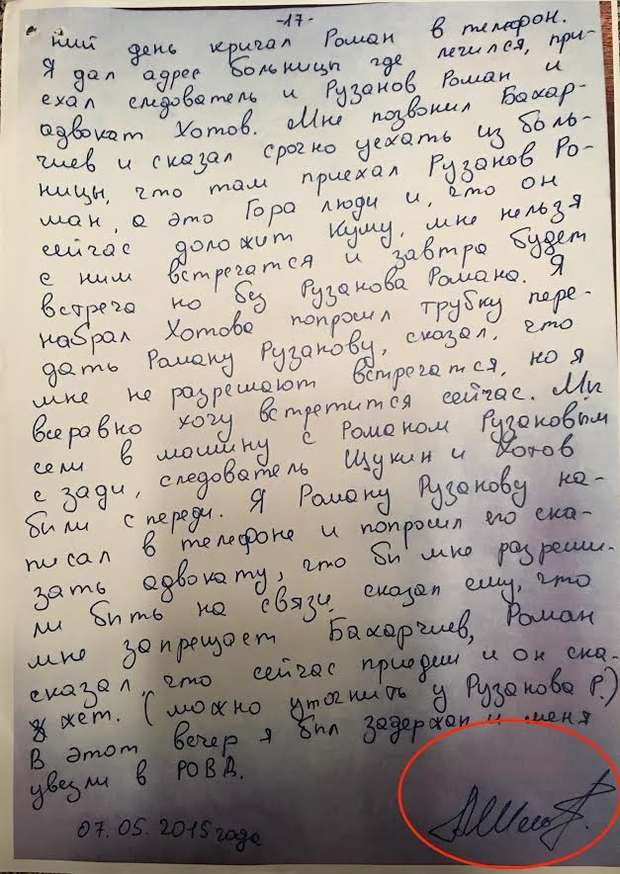 -17-
ний день кричал Роман в телефон.
Я дал адрес больницы где лечился, при-
ехал следователь и Рузанов Роман и
адвокат Хотов. Мне позвонил Бахар-
чиев и сказал срочно уехать из боль-
ницы, что там приехал Рузанов Ро-
ман, а это Гора люди и, что он
сейчас доложит Куму, мне нельзя
с ним встречатся и завтра будет
встреча но без Рузанова Романа. Я
набрал Хотова попросил трубку пере-
дать Роману Рузанову, сказал, что
мне не разрешают встречатся, но я
всеравно хочу встретится сейчас. Ми
сели в машину с Романом Рузановым
с зади, следователь Щукин и Хотов
били с переди. Я Роману Рузанову на-
писал в телефоне и попросил его ска-
зать адвокату, что би мне разреши-
ли бить на связи, сказал ему, что
мне запрещает Бахарчиев, Роман
сказал, что сейчас приедим и он ска-
жет. (можно уточнить у Рузанова Р.)
В этот вечер я бил задержан и меня
увезли в РОВД.
07.05.2015 года